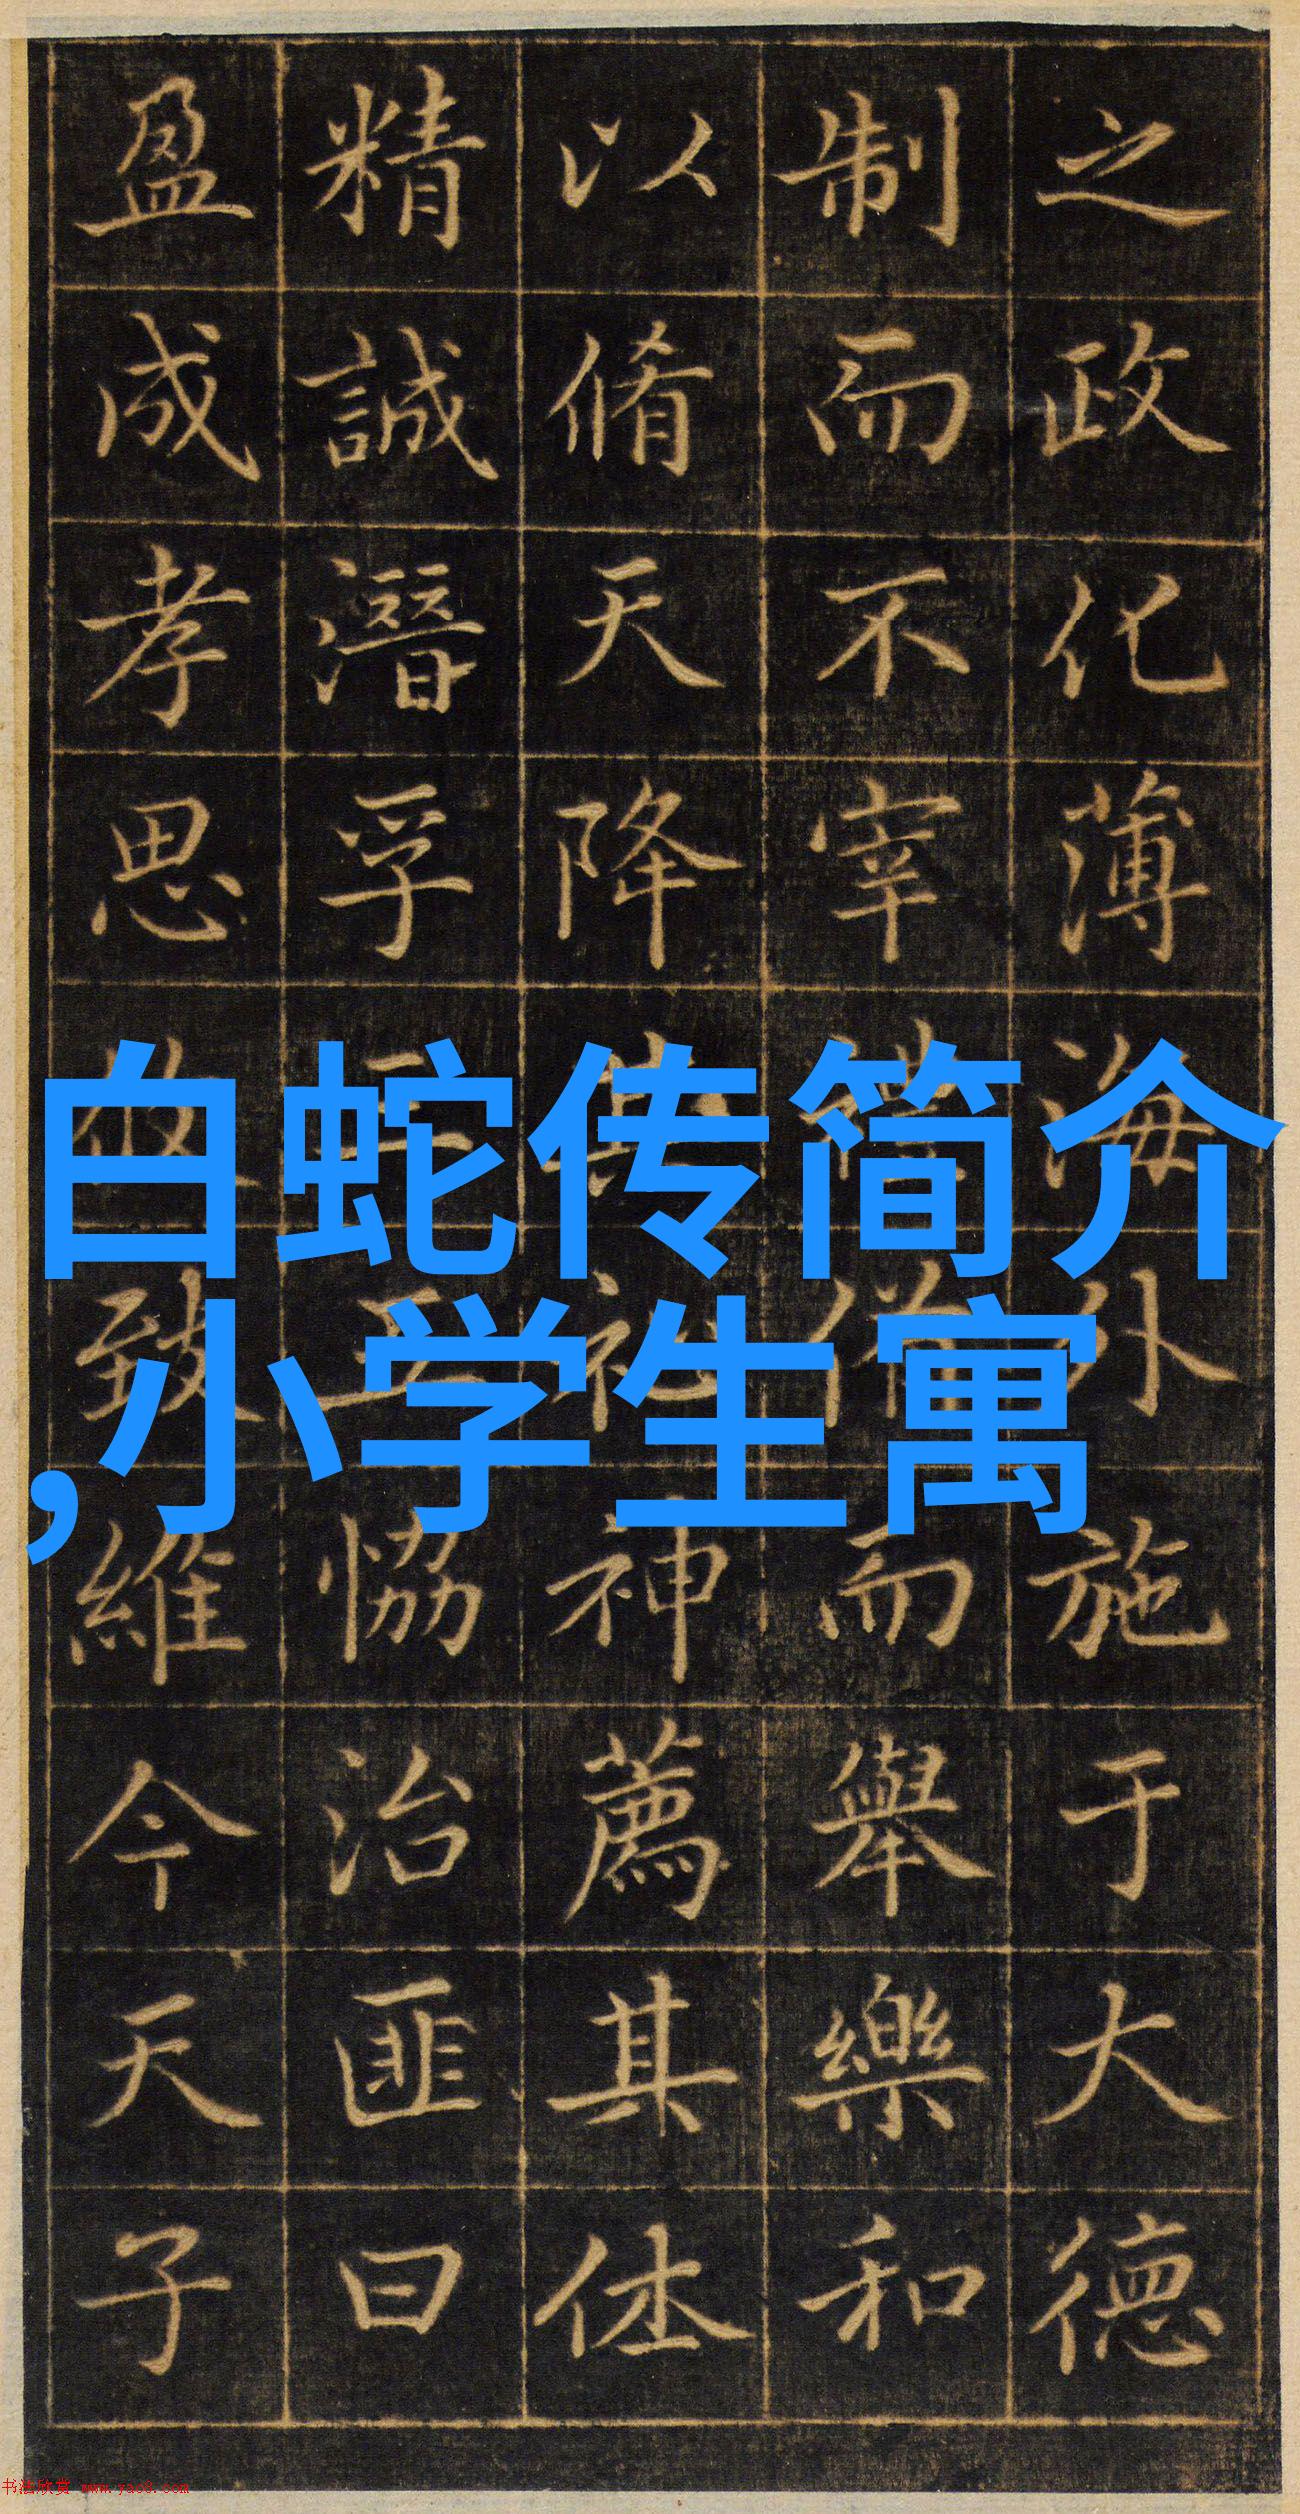 之政化薄海外施于大德
制而不宰禮備而舉樂和
以脩天降其祀神薦其休
精誠潛孚恊治匪曰
盈成孝思致維今天子
白蛇传简介
,小学生寓
书法欣赏 www.yac8.com